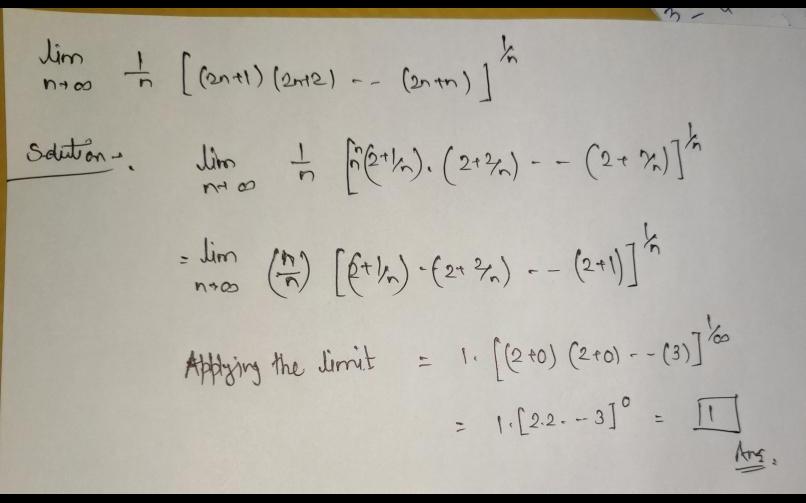 lim n→∞ 1/n [(2n+1) (2n+2) - - (2n+n)]^1/n
Solution:. lim n→∞ 1/n [n^n(2+1/n). (2+2/n) - - (2+n/n)]^1/n
= lim n→∞ (n/n) [(2+1/n) - (2+2/n) - - (2+1)]^1/n
Applying the limit = 1. [(2+0) (2+0) - - (3)]^1/∞
= 1.[2.2. - - 3]^0 = 1
Ans.